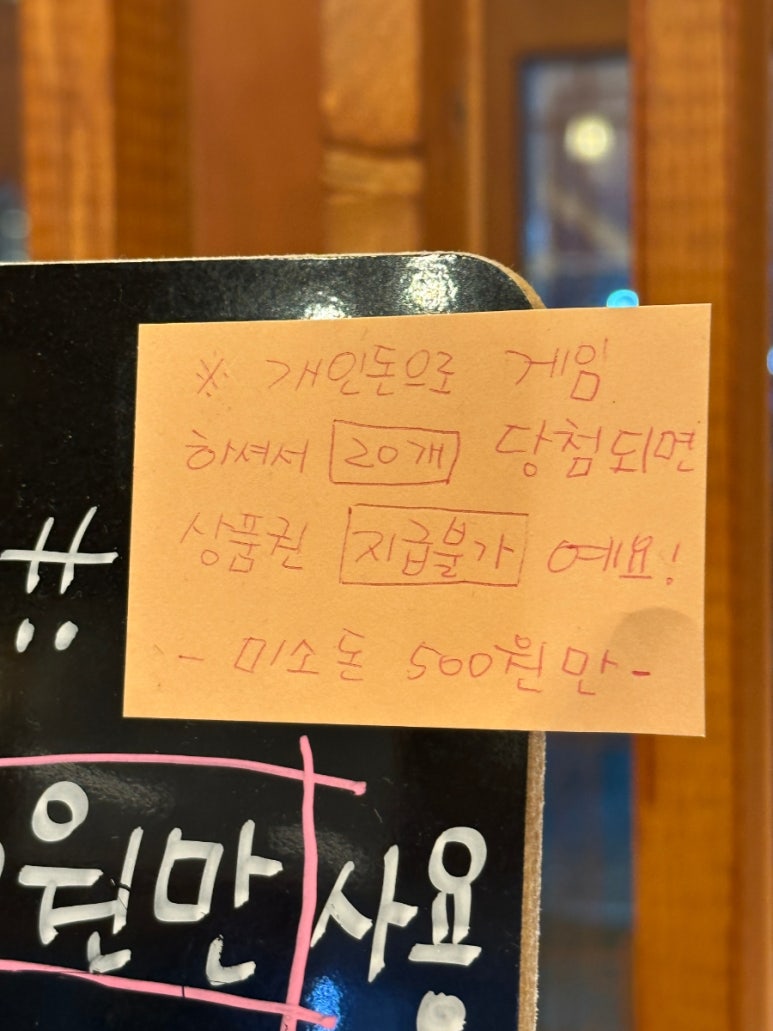 ※ 개인돈으로 게임
하셔서 20개 당첨되면
상품권 지급불가 예요!
- 미소돈 500원만 -
원만 사용